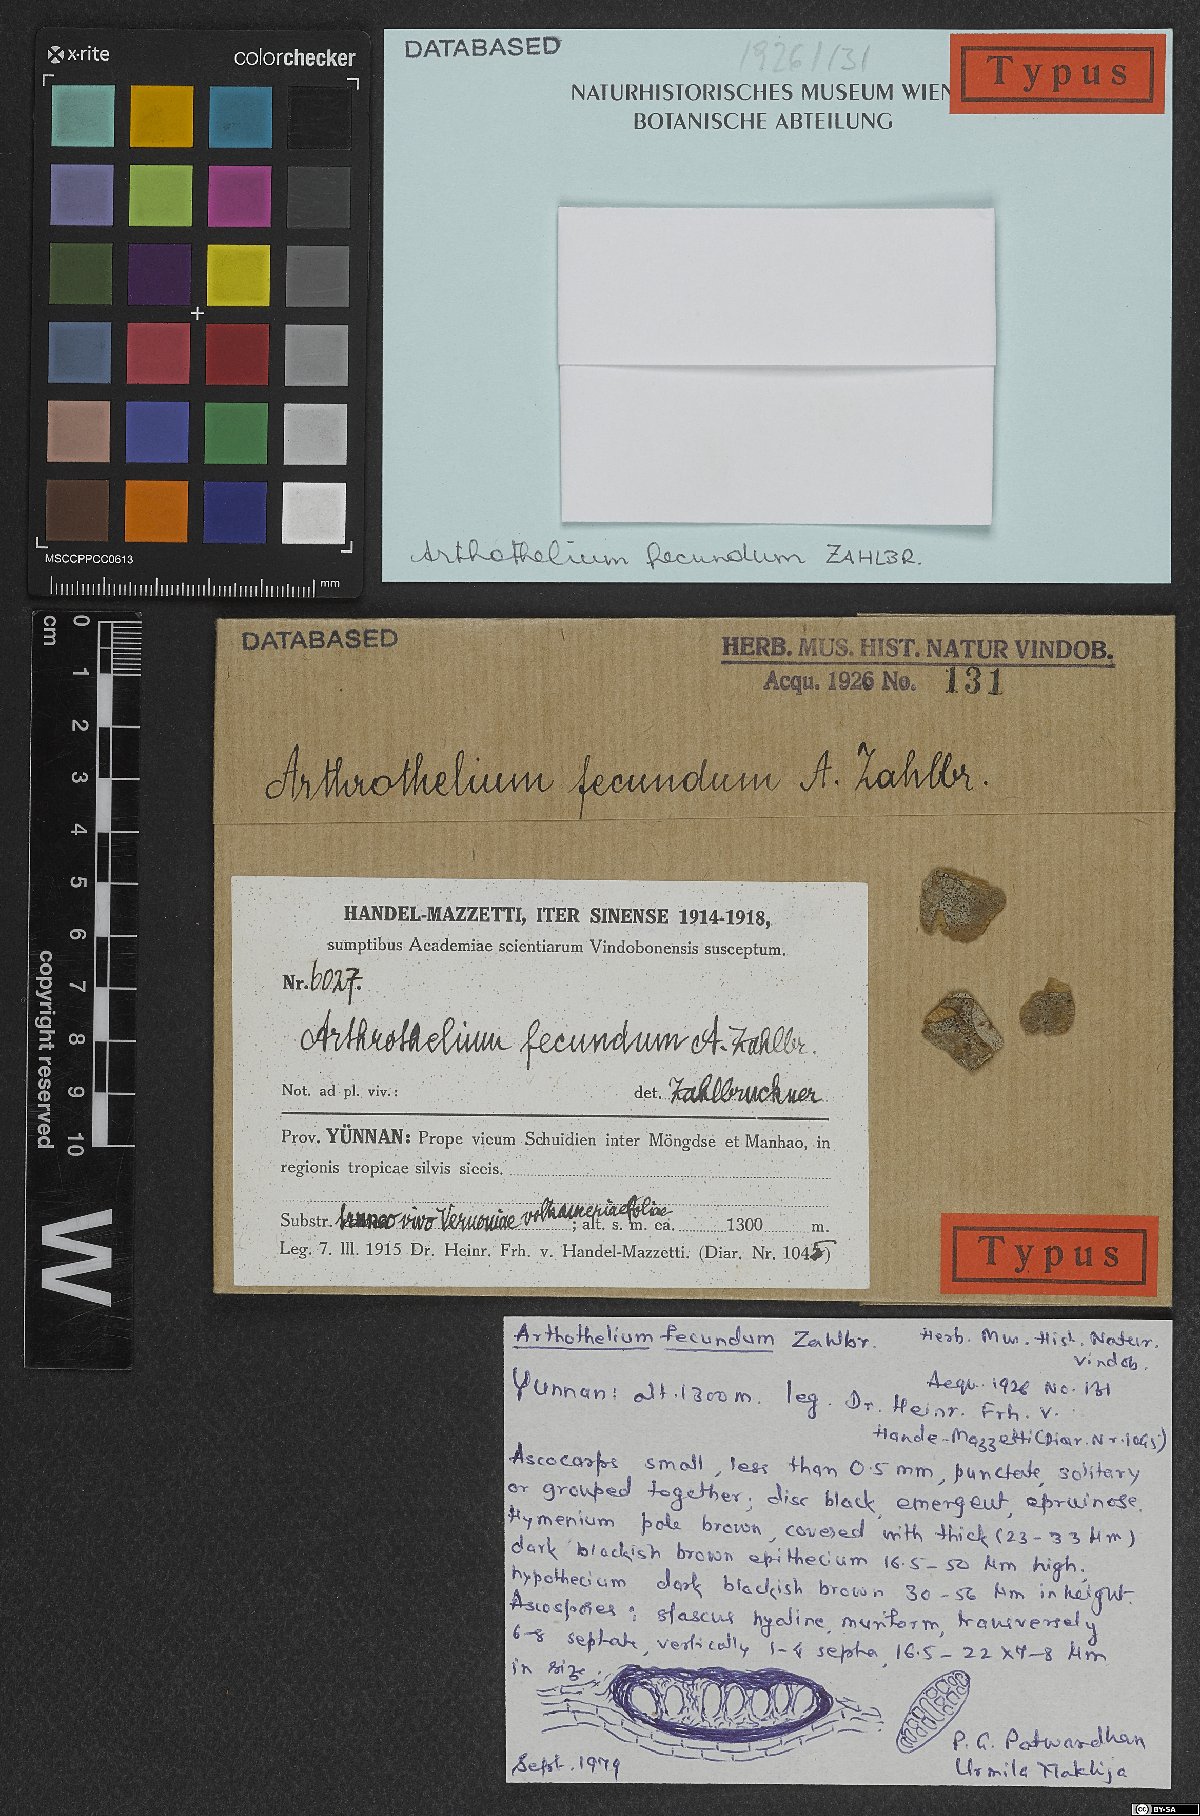 x-rite
colorchecker
MSCCPPCC0613
mm
DATABASED
1926/131
NATURHISTORISCHES MUSEUM WIEN
BOTANISCHE ABTEILUNG
Typus
Arthothelium fecundum ZAHLBR.
cm
0 1 2 3 4 5 6 7 8 9 10
copyright reserved
W
DATABASED
HERB. MUS. HIST. NATUR VINDOB.
Acqu. 1926 No. 131
Arthrothelium fecundum A. Zahlbr.
HANDEL-MAZZETTI, ITER SINENSE 1914-1918,
sumptibus Academiae scientiarum Vindobonensis susceptum.
Nr. 6027.
Arthrothelium fecundum A. Zahlbr.
Not. ad pl. viv.: det. Zahlbruckner
Prov. YÜNNAN: Prope vicum Schuidien inter Möngdse et Manhao, in
regionis tropicae silvis siccis.
Substr. trunco vivo Vernoniae volkameriaefoliae; alt. s. m. ca. 1300 m.
Leg. 7. III. 1915 Dr. Heinr. Frh. v. Handel-Mazzetti. (Diar. Nr. 1045)
Typus
Arthothelium fecundum Zahlbr. Herb. Mus. Hist. Natur.
Vindob.
Aequ. 1926 No. 131
Yunnan: alt. 1300m. leg. Dr. Heinr. Frh. v.
Hande-Mazzetti (Diar. Nr. 1045)
Ascocarps small, less than 0.5 mm, punctate, solitary
or grouped together; disc black, emergent, epruinose.
Hymenium pale brown, covered with thick (23-33 µm)
dark blackish brown epithecium 16.5-50 µm high.
hypothecium dark blackish brown 30-56 µm in height.
Ascospores: 8/ascus hyaline, muriform, transversely
6-8 septate, vertically 1-4 septa, 16.5-22 x 7-8 µm
in size.
P. G. Patwardhan
Urmila Makhija
Sept. 1979
CC BY-SA